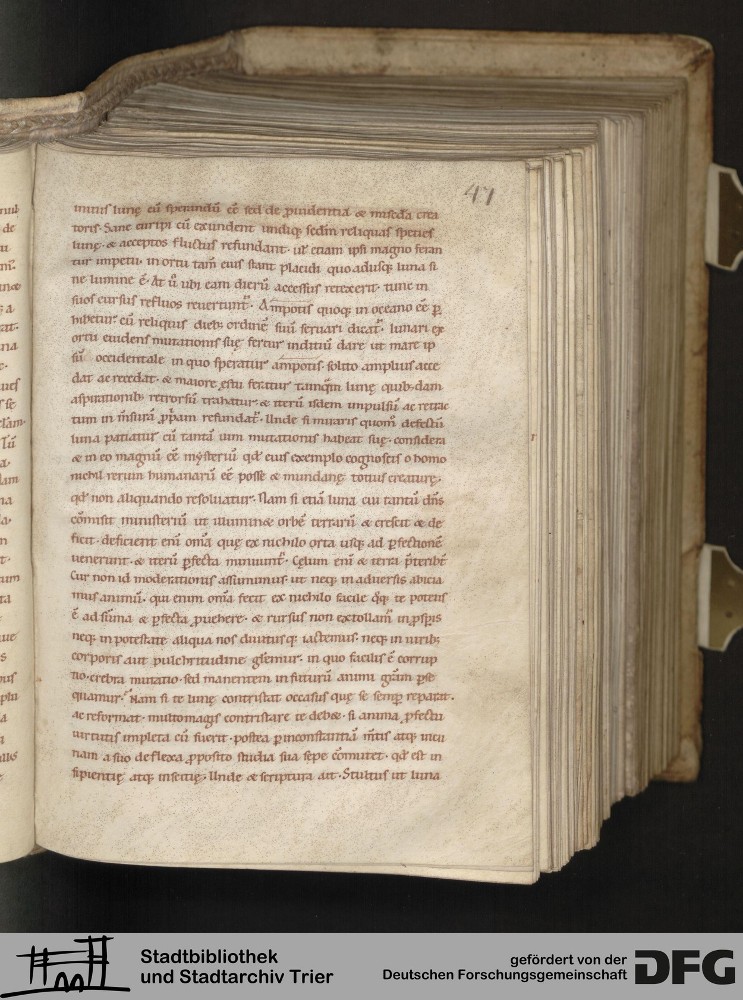 47
minus lunę eū sperandū eē sed de ꝓuidentia & miscd̄ia crea
toris. Sane euripi cū exundent undiq; sedm̄ reliquas species
lunę. & acceptos fluctus refundant. ut etiam ipsi magno feran
tur impetu in ortu tam̄ eius stant placidi quo adusq; luna si
ne lumine ē. At ū ubi eam dierū accessus retexerit. tunc in
suos cursus refluos reuertunt᷑. Ampotis quoq; in oceano eē ꝑ
hibetur cū reliquis dieb; ordinē suū seruari dicat᷑. lunari ex
ortu euidens mutationis suę fertur inditiū dare ut mare ip
sū occidentale in quo speratur ampotis. solito amplius acce
dat ac recedat. & maiore ęstu feratur tamqm̄ lunę quib; dam
aspirationib; retrorsū trahatur & iterū isdem inpulsū ac retrac
tum in m̄surā ꝓp̄am refundat᷑. Unde si miraris quom̄ defectū
luna patiatur cū tantā uim mutationis habeat suę. considera
& in eo magnū eē mysteriū qd̄ eius exemplo cognoscis o homo
nichil rerum humanarū eē posse & mundanę totius creaturę.
qd̄ non aliquando resoluatur. Nam si etiā luna cui tantū dn̄s
cōmisit ministeriū ut illumin& orbē terrarū & crescit & de
ficit. deficient eni om̄a quę ex nichilo orta usq; ad ꝑfectionē
uenerunt. & iterū ꝑfecta minuunt᷑. Cęlum eni & terra p̄teribt̄
Cur non id moderationis assumimus ut neq; in aduersis abicia
mus animū. qui enim om̄a fecit ex nichilo facile q̄q; te potens
ē ad sūma & ꝑfecta ꝓuehere. & rursus non extollam᷑ in ꝓsꝑis
neq; in potestate aliqua nos diuitiisq; iactemus. neq; in uirib;
corporis aut pulchritudine glīemur. in quo facilis ē corrup
tio. crebra mutatio. sed manentem in futurū animi grām ꝑse
quamur. Nam si te lunę contristat occasus quę se semꝑ reparat.
ac reformat. multomagis contristare te deb&. si anima ꝓfectu
uirtutis impleta cū fuerit. postea ꝑ inconstantiā m̄tis atq; incu
riam a suo deflexa ꝓposito studia sua sepe cōmutet. qd̄ est in
sipientię atq; inscitię. Unde & scriptura ait. Stultus ut luna
Stadtbibliothek
und Stadtarchiv Trier
gefördert von der
Deutschen Forschungsgemeinschaft
DFG